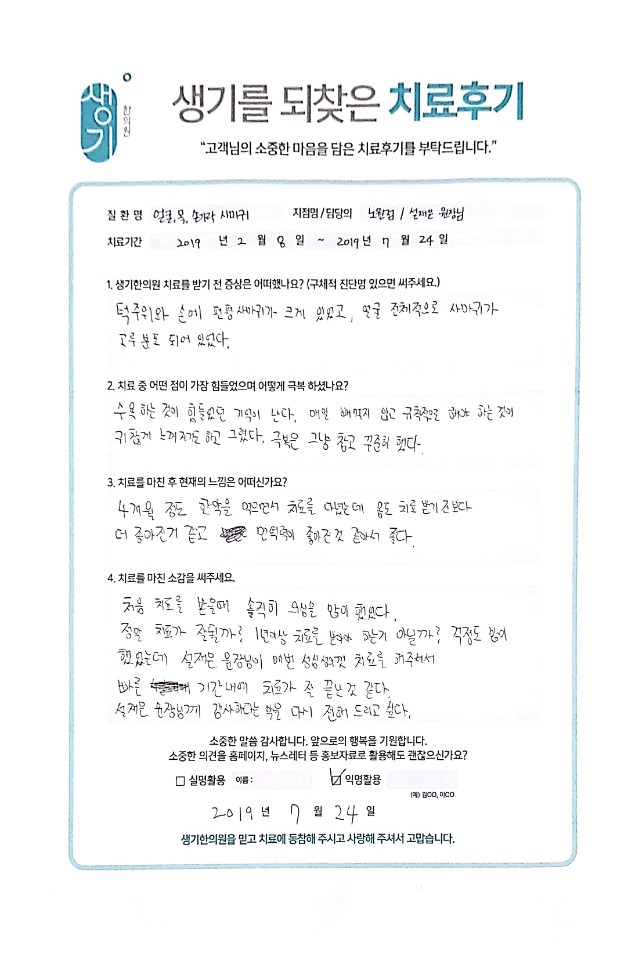 생기
한의원
생기를 되찾은 치료후기
“고객님의 소중한 마음을 담은 치료후기를 부탁드립니다.”
질 환 명 얼굴, 목, 손가락 사마귀 지점명 / 담당의 노원점 / 설재은 원장님
치료기간 2019 년 2 월 8 일 ~ 2019 년 7 월 24 일
1. 생기한의원 치료를 받기 전 증상은 어떠했나요? (구체적 진단명 있으면 써주세요.)
턱주위와 손에 편평사마귀가 크게 있었고, 얼굴 전체적으로 사마귀가
고루 분포 되어 있었다.
2. 치료 중 어떤 점이 가장 힘들었으며 어떻게 극복 하셨나요?
수욕 하는 것이 힘들었던 기억이 난다. 매일 빼먹지 않고 규칙적으로 해야 하는 것이
귀찮게 느껴지기도하고 그랬다. 극복은 그냥 참고 꾸준히 했다.
3. 치료를 마친 후 현재의 느낌은 어떠신가요?
4개월 정도 한약을 먹으면서 치료를 다녔는데 몸도 치료 받기 전보다
더 좋아진거 같고 면역력이 좋아진것 같아서 좋다.
4. 치료를 마친 소감을 써주세요.
처음 치료를 받을때 솔직히 의심을 많이 했었다.
정말 치료가 잘될까? 1년이상 치료를 받아야 하는거 아닐까? 걱정도 많이
했었는데 설재은 원장님이 매번 성심성의껏 치료를 해주셔서
빠른 기간내에 치료가 잘 끝난것 같다.
설재은 원장님께 감사하다는 말을 다시 전해 드리고 싶다.
소중한 말씀 감사합니다. 앞으로의 행복을 기원합니다.
소중한 의견을 홈페이지, 뉴스레터 등 홍보자료로 활용해도 괜찮으신가요?
실명활용 이름 : 익명활용
(예) 김OO, 이OO
2019 년 7 월 24 일
생기한의원을 믿고 치료에 동참해 주시고 사랑해 주셔서 고맙습니다.